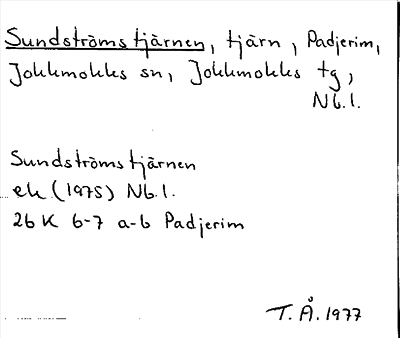 Sundströmstjärnen, tjärn, Padjerim,
Jokkmokks sn, Jokkmokks tg,
Nb.l.
Sundströmstjärnen
ek (1975) Nb.l.
26 K 6-7 a-b Padjerim
T.Å. 1977